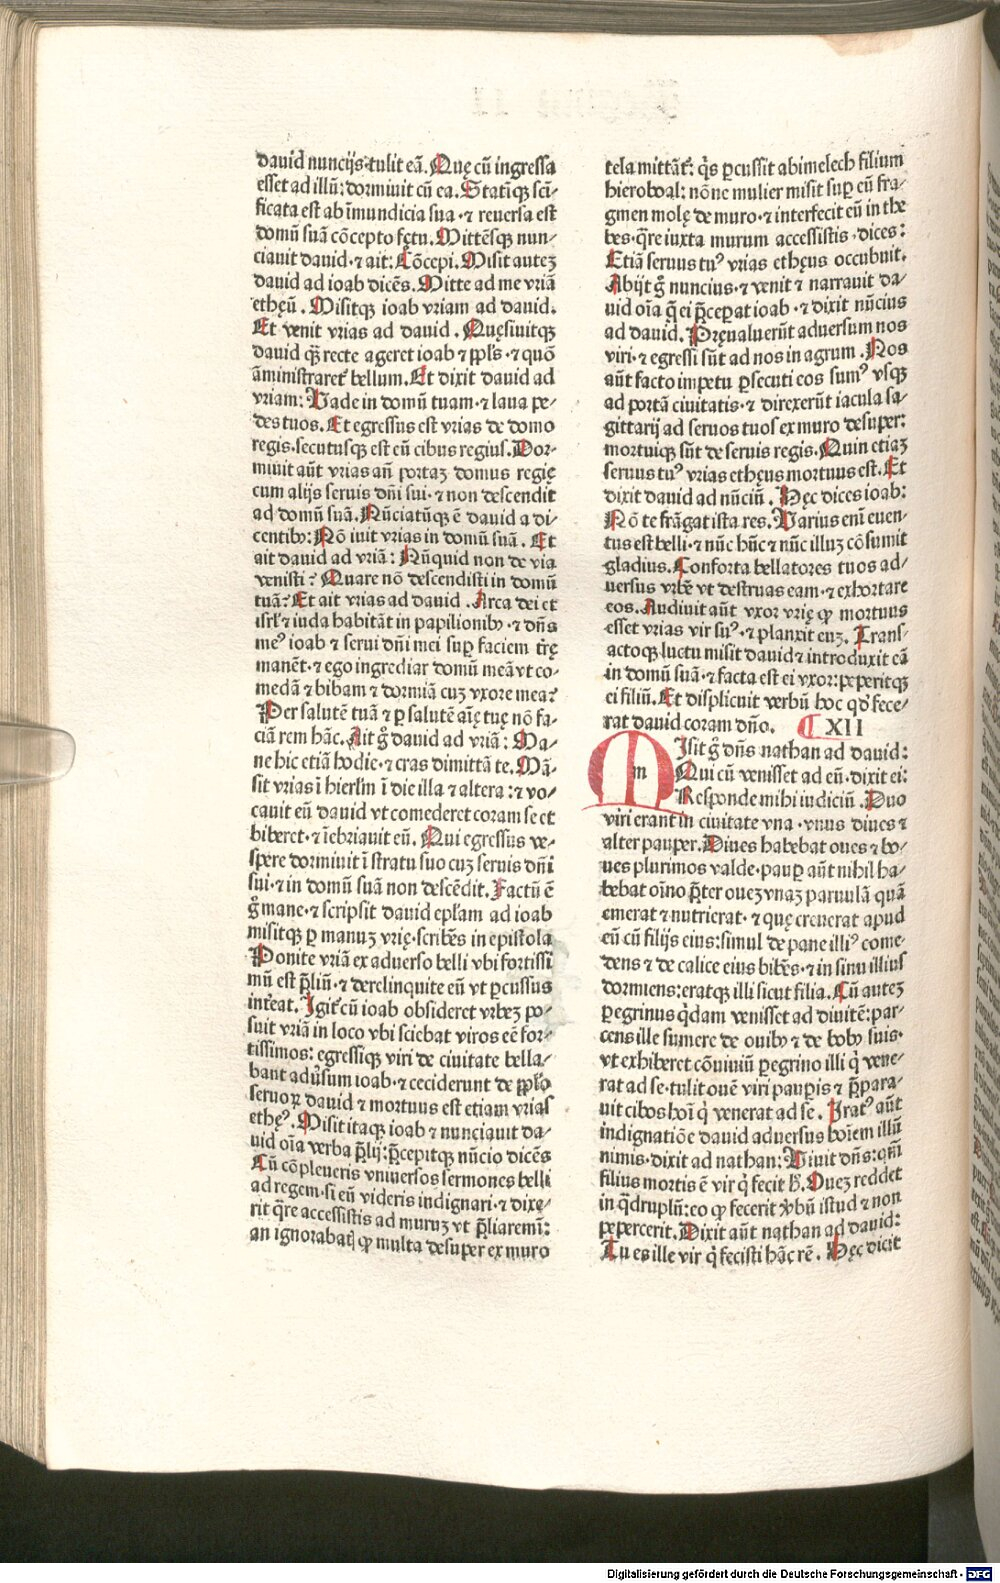 dauid nuncijs·tulit eã. Quę cũ ingressa
esset ad illũ: dormiuit cũ ea. Statiꝫ scĩ⸗
ficata est ab ĩmundicia sua·⁊ reuersa est
domũ suã cõcepto fętu. Mittẽsqꝫ nun⸗
ciauit dauid·⁊ ait: Cõcepi. Misit autez
dauid ad ioab dicẽs. Mitte ad me vriã
ethęũ. Misitqꝫ ioab vriam ad dauid.
Et venit vrias ad dauid. Quęsiuitqꝫ
dauid q̃ꝫ recte ageret ioab ⁊ ppl's·⁊ quõ
ãministraret᷑ bellum. Et dixit dauid ad
vriam: Vade in domũ tuam·⁊ laua pe⸗
des tuos. Et egressus est vrias de domo
regis·secutusqꝫ est eũ cibus regius. Dor⸗
miuit aũt vrias añ portaz domus regię
cum alijs seruis dñi sui·⁊ non descendit
ad domũ suã. Nũciatũqꝫ ẽ dauid a di⸗
centibꝫ: Nõ iuit vrias in domũ suã. Et
ait dauid ad vriã: Nũquid non de via
venisti? Quare nõ descendisti in domũ
tuã? Et ait vrias ad dauid. Arca dei et
isrł ⁊ iuda habitãt in papilionibꝫ·⁊ dñs
me⁹ ioab ⁊ serui dñi mei suꝑ faciem tr̃ę
manẽt·⁊ ego ingrediar domũ meã vt co⸗
medã ⁊ bibam ⁊ dormiã cuz vxore mea?
Per salutẽ tuã ⁊ ꝑ salutẽ aĩę tuę nõ fa⸗
ciã rem hãc. Ait g̃ dauid ad vriã: Ma⸗
ne hic etiã hodie·⁊ cras dimittã te. Mã⸗
sit vrias ĩ hierłm ĩ die illa ⁊ altera: ⁊ vo⸗
cauit eũ dauid vt comederet coram se et
biberet·⁊ ĩebriauit eũ. Qui egressus ve⸗
spere dormiuit ĩ stratu suo cuz seruis dñi
sui·⁊ in domũ suã non descẽdit. Factũ ẽ
g̃ mane·⁊ scripsit dauid epłam ad ioab
misitqꝫ ꝑ manuz vrię·scribẽs in epistola
Ponite vriã ex aduerso belli vbi fortissi
mũ est p̃liũ·⁊ derelinquite eũ vt ꝑcussus
int̃eat. Igit᷑ cũ ioab obsideret vrbez po⸗
suit vriã in loco vbi sciebat viros eẽ for⸗
tissimos: egressiqꝫ viri de ciuitate bella⸗
bant adũsum ioab·⁊ ceciderunt de ppło
seruoꝝ dauid ⁊ mortuus est etiam vrias
ethe⁹. Misit itaqꝫ ioab ⁊ nunciauit da⸗
uid oĩa verba p̃lij: p̃cepitqꝫ nũcio dicẽs
Cũ cõpleueris vniuersos sermones belli
ad regem·si eũ videris indignari·⁊ dixe⸗
rit q̃re accessistis ad muruz vt p̃liaremĩ:
an ignorabatꝭ ꝙ multa desuper ex muro
tela mittãt᷑: q̃s ꝑcussit abimelech filium
hieroboal: nõne mulier misit suꝑ eũ fra⸗
gmen molę de muro·⁊ interfecit eũ in the
bes·q̃re iuxta murum accessistis·dices:
Etiã seruus tu⁹ vrias ethęus occubuit.
Abijt g̃ nuncius·⁊ venit ⁊ narrauit da⸗
uid oĩa q̃ ei p̃ceꝑat ioab·⁊ dixit nũcius
ad dauid. Pręualuerũt aduersum nos
viri·⁊ egressi sũt ad nos in agrum. Nos
aũt facto impetu ꝑsecuti eos sum⁹ vsqꝫ
ad portã ciuitatis·⁊ direxerũt iacula sa⸗
gittarij ad seruos tuos ex muro desuper:
mortuiqꝫ sũt de seruis regis. Quin etiaz
seruus tu⁹ vrias ethęus mortuus est. Et
dixit dauid ad nũciũ. Hęc dices ioab:
Nõ te frãgat ista res. Varius enĩ euen⸗
tus est belli·⁊ nũc hũc ⁊ nũc illuz cõsumit
gladius. Conforta bellatores tuos ad⸗
uersus vrbẽ vt destruas eam·⁊ exhortare
eos. Audiuit aũt vxor vrię ꝙ mortuus
esset vrias vir su⁹·⁊ planxit euz. Trans⸗
actoqꝫ luctu misit dauid ⁊ introduxit eã
in domũ suã·⁊ facta est ei vxor: peperitqꝫ
ei filiũ. Et displicuit verbũ hoc qd' fece⸗
rat dauid coram dño. XII
mIsit g̃ dñs nathan ad dauid:
Qui cũ venisset ad eũ·dixit ei:
Responde mihi iudiciũ. Duo
viri erant in ciuitate vna·vnus diues ⁊
alter pauper. Diues habebat oues ⁊ bo⸗
ues plurimos valde·pauꝑ aũt nihil ha⸗
bebat oĩno p̃ter ouez vnaz paruulã quã
emerat ⁊ nutrierat·⁊ quę creuerat apud
eũ cũ filijs eius: simul de pane illi⁹ come⸗
dens ⁊ de calice eius bibẽs·⁊ in sinu illius
dormiens: eratqꝫ illi sicut filia. Cũ autez
ꝑegrinus q̃dam venisset ad diuitẽ: par⸗
cens ille sumere de ouibꝫ ⁊ de bobꝫ suis·
vt exhiberet cõuiuiũ ꝑegrino illi q̇ vene⸗
rat ad se·tulit ouẽ viri pauꝑis ⁊ p̃para⸗
uit cibos hoĩ q̇ venerat ad se. Irat⁹ aũt
indignatiõe dauid aduersus hoĩem illũ
nimis·dixit ad nathan: Viuit dñs: qm̃
filius mortis ẽ vir q̇ fecit h̾. Ouez reddet
in q̃druplũ: eo ꝙ fecerit v̾bũ istud ⁊ non
pepercerit. Dixit aũt nathan ad dauid:
Tu es ille vir q̇ fecisti hãc rẽ. Hęc dicit
Digitalisierung gefördert durch die Deutsche Forschungsgemeinschaft - DFG